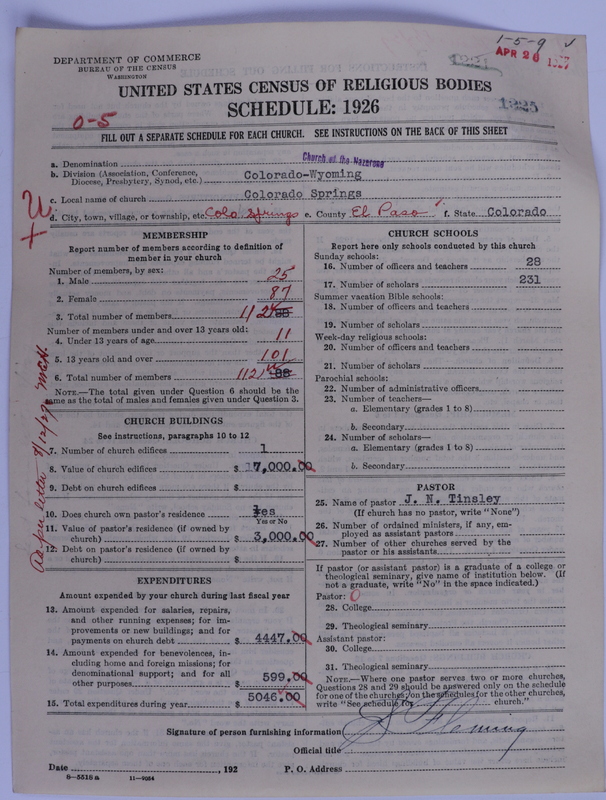 1-5-9 ✓
DEPARTMENT OF COMMERCE
BUREAU OF THE CENSUS
WASHINGTON
APR 20 1927
UNITED STATES CENSUS OF RELIGIOUS BODIES
SCHEDULE: 1926
1225
0-5
FILL OUT A SEPARATE SCHEDULE FOR EACH CHURCH. SEE INSTRUCTIONS ON THE BACK OF THIS SHEET
a. Denomination Church of the Nazarene
b. Division (Association, Conference, Diocese, Presbytery, Synod, etc.) Colorado-Wyoming
c. Local name of church Colorado Springs
d. City, town, village, or township, etc. Colo Springs e. County El Paso f. State Colorado
MEMBERSHIP
Report number of members according to definition of member in your church
Number of members, by sex:
1. Male 25
2. Female 87
3. Total number of members 112
Number of members under and over 13 years old:
4. Under 13 years of age 11
5. 13 years old and over 101
6. Total number of members 112
NOTE.—The total given under Question 6 should be the same as the total of males and females given under Question 3.
As per letter 9/12/27
CHURCH BUILDINGS
See instructions, paragraphs 10 to 12
7. Number of church edifices 1
8. Value of church edifices $ 17,000.00
9. Debt on church edifices $
10. Does church own pastor's residence? Yes
Yes or No
11. Value of pastor's residence (if owned by church) $ 3,000.00
12. Debt on pastor's residence (if owned by church) $
EXPENDITURES
Amount expended by your church during last fiscal year
13. Amount expended for salaries, repairs, and other running expenses; for improvements or new buildings; and for payments on church debt $ 4447.00
14. Amount expended for benevolences, including home and foreign missions; for denominational support; and for all other purposes $ 599.00
15. Total expenditures during year $ 5046.00
CHURCH SCHOOLS
Report here only schools conducted by this church
Sunday schools:
16. Number of officers and teachers 28
17. Number of scholars 231
Summer vacation Bible schools:
18. Number of officers and teachers
19. Number of scholars
Week-day religious schools:
20. Number of officers and teachers
21. Number of scholars
Parochial schools:
22. Number of administrative officers
23. Number of teachers—
a. Elementary (grades 1 to 8)
b. Secondary
24. Number of scholars—
a. Elementary (grades 1 to 8)
b. Secondary
PASTOR
25. Name of pastor J. N. Tinsley
(If church has no pastor, write "None")
26. Number of ordained ministers, if any, employed as assistant pastors
27. Number of other churches served by the pastor or his assistants
If pastor (or assistant pastor) is a graduate of a college or theological seminary, give name of institution below. (If not a graduate, write "No" in the space indicated.)
Pastor: 0
28. College
29. Theological seminary
Assistant pastor:
30. College
31. Theological seminary
NOTE.—Where one pastor serves two or more churches, Questions 28 and 29 should be answered only on the schedule for one of the churches; on the schedules for the other churches, write "See schedule for church."
Signature of person furnishing information Fleming
Official title
Date , 192 P. O. Address
8-5518a 11-9034